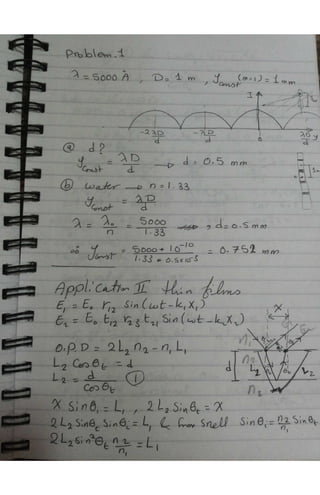 Problem-1
λ = 5000 Å, D = 1 m, y const (n=1) = 1 mm
I
-2λD/d -λD/d 0 λD/d y
ⓐ d?
y const = λD/d → d = 0.5 mm
ⓑ water → n = 1.33
y const = λD/d
λ = λ₀/n = 5000/1.33 , d = 0.5 mm
∴ y const = 5000 * 10⁻¹⁰/1.33 * 0.5x10⁻³ = 0.752 mm
Application II thin films
E₁ = E₀ r₁₂ sin(ωt - k₁x₁)
E₂ = E₀ t₁₂ r₂₃ t₂₁ sin(ωt - k₂x₂)
O.P.D = 2L₂n₂ - n₁L₁
L₂ cosθt = d
L₂ = d/cosθt ①
x sinθi = L₁, 2L₂ sinθt = x
2L₂ sinθt sinθi = L₁ & from snell sinθi = n₂/n₁ sinθt
2L₂ sin²θt n₂/n₁ = L₁
x
n₁
n₂
d
L₂
L₂